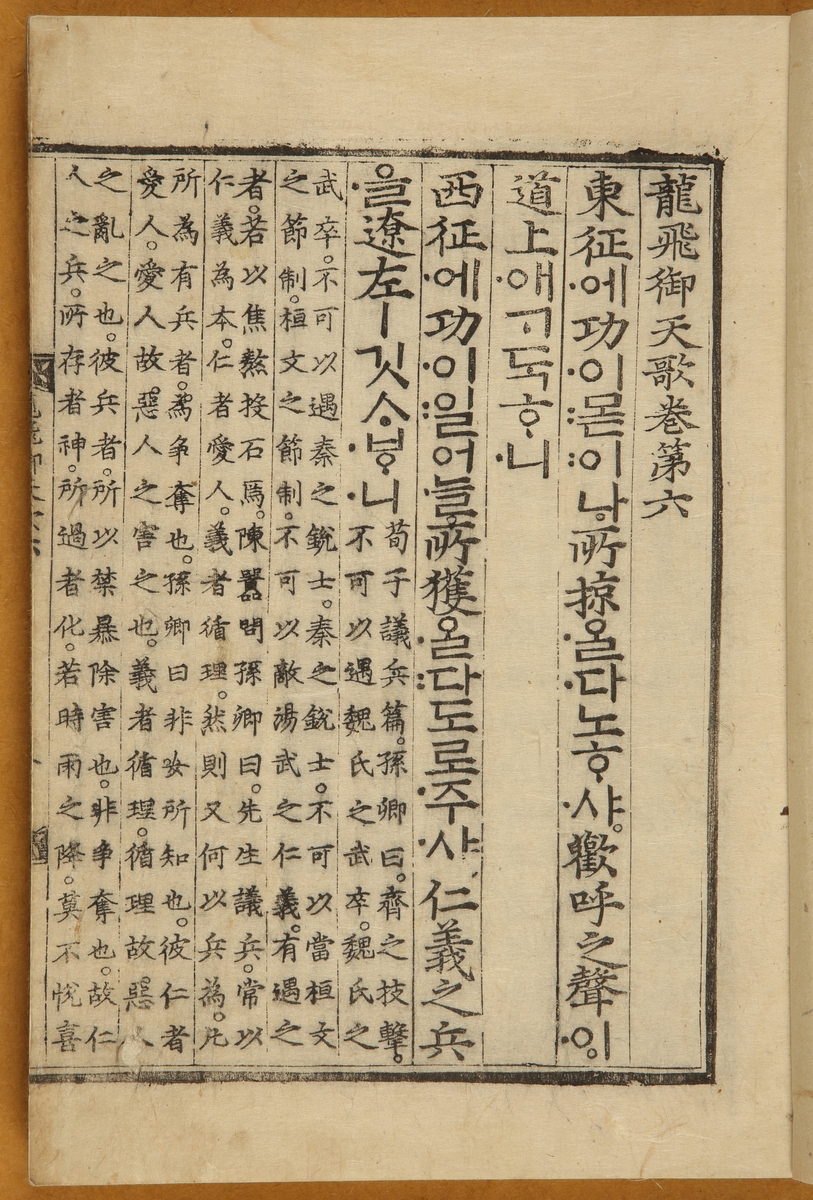 龍飛御天歌卷第六
東征에功이몯이나所掠ᄋᆞᆯ다노ᄒᆞ샤歡呼之聲이
道上애ᄀᆞ독ᄒᆞ니
西征에功이일어늘所獲ᄋᆞᆯ다도로주샤仁義之兵
ᄋᆞᆯ遼左ㅣ깃ᄉᆞᄫᆞ니
荀子議兵篇。孫卿曰。齊之技擊。
不可以遇魏氏之武卒。魏氏之
武卒。不可以遇秦之銳士。秦之銳士。不可以當桓文
之節制。桓文之節制。不可以敵湯武之仁義。有遇之
者。若以焦熬投石焉。陳囂問孫卿曰。先生議兵。常以
仁義為本。仁者愛人。義者循理。然則又何以兵為。凡
所為有兵者。為爭奪也。孫卿曰非汝所知也。彼仁者
愛人。愛人故。惡人之害之也。義者循理。循理故。惡人
之亂之也。彼兵者。所以禁暴除害也。非爭奪也。故仁
人之兵。所存者神。所過者化。若時雨之降。莫不悅喜